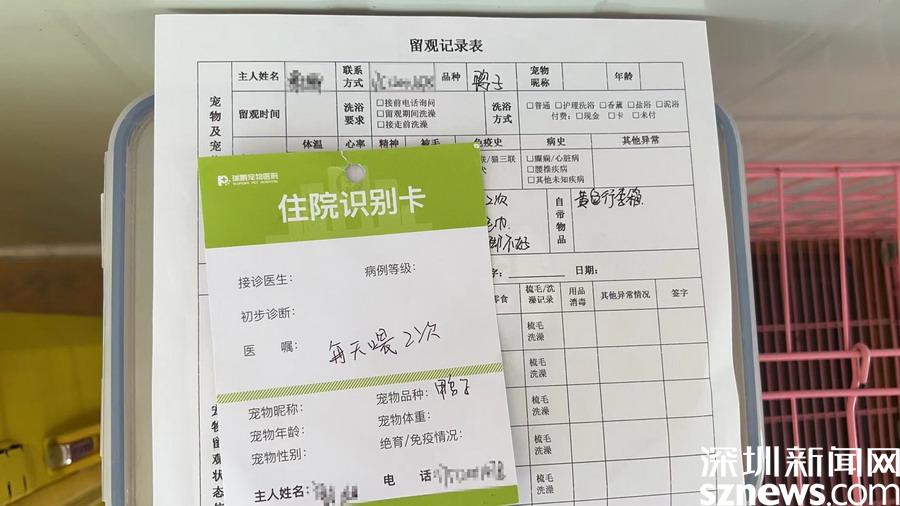 留观记录表
主人姓名 联系方式 品种 鸭子 宠物昵称 年龄
留观时间 洗浴要求 □接前电话询问 □留观期间洗澡 □接走前洗澡 洗浴方式 □普通 □护理洗浴 □香薰 □盐浴 □泥浴
付费：□现金 □卡 □未付
体温 心率 精神 被毛 免疫史 病史 其他异常
联/猫三联 □癫痫/心脏病
□腰椎疾病
□其他未知疾病
2次 自带物品 黄白行李箱
字： 日期：
零食 梳毛/洗澡记录 用品消毒 其他异常情况 签字
梳毛
洗澡
梳毛
洗澡
梳毛
洗澡
梳毛
洗澡
梳毛
洗澡
瑞鹏宠物医院
住院识别卡
接诊医生： 病例等级：
初步诊断：
医 嘱： 每天喂2次
宠物昵称： 宠物品种：鸭子
宠物年龄： 宠物体重：
宠物性别： 绝育/免疫情况：
主人姓名： 电 话
深圳新闻网
sznews.com